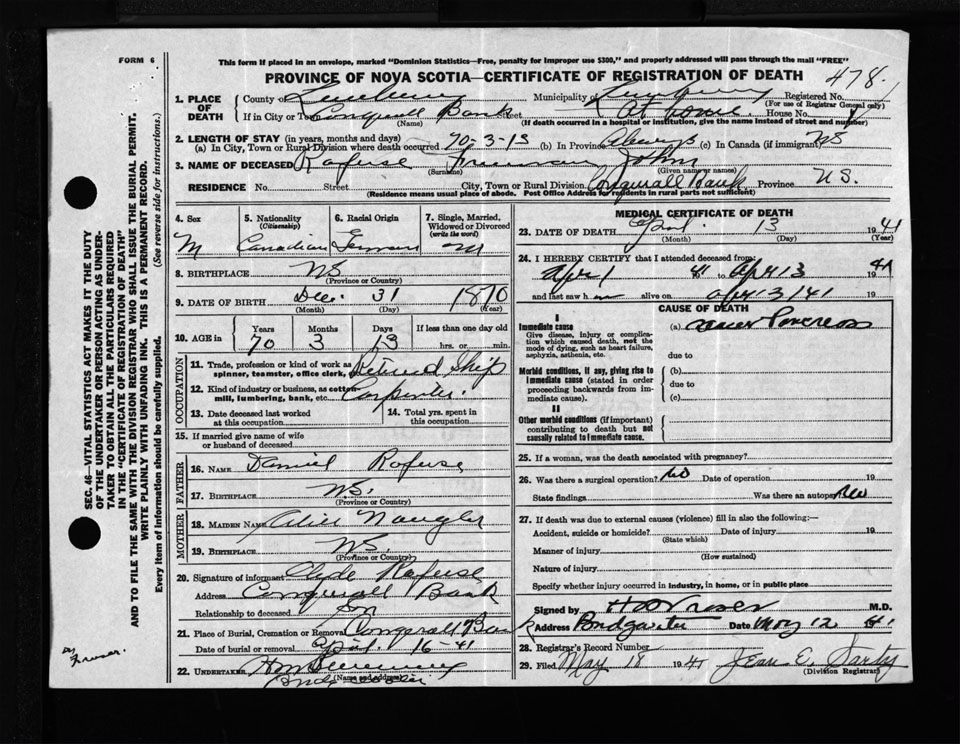 FORM 6
This form if put in an envelope, marked "Dominion Statistics—Free, penalty for improper use $300," and properly addressed will pass through the mail "FREE"
PROVINCE OF NOVA SCOTIA—CERTIFICATE OF REGISTRATION OF DEATH
478
1. PLACE OF DEATH
County of Lunenburg Municipality of Lunenburg Registered No.
(For use of Registrar General only)
If in City or Town Conquerall Bank Street At home House No.
(Name) (If death occurred in a hospital or institution, give the name instead of street and number)
2. LENGTH OF STAY (in years, months and days)
(a) In City, Town or Rural Division where death occurred 70-3-13 (b) In Province Always (c) In Canada (if immigrant) NS
3. NAME OF DECEASED Rafuse Freeman John
(Surname) (Given name or names)
RESIDENCE No. Street City, Town or Rural Division Conquerall Bank Province N.S.
(Residence means usual place of abode. Post Office Address for residents in rural parts not sufficient)
4. Sex
M
5. Nationality
(Citizenship)
Canadian
6. Racial Origin
German
7. Single, Married, Widowed or Divorced
(write the word)
M
8. BIRTHPLACE NS
(Province or Country)
9. DATE OF BIRTH Dec. 31 1870
(Month) (Day) (Year)
10. AGE in
Years Months Days If less than one day old
70 3 13 hrs. or min.
OCCUPATION
11. Trade, profession or kind of work as spinner, teamster, office clerk, Retired Ship
12. Kind of industry or business, as cotton-mill, lumbering, bank, etc. Carpenter.
13. Date deceased last worked at this occupation
14. Total yrs. spent in this occupation
15. If married give name of wife or husband of deceased
FATHER
16. NAME Daniel Rafuse
17. BIRTHPLACE N.S.
(Province or Country)
MOTHER
18. MAIDEN NAME Alice Naugler
19. BIRTHPLACE NS.
(Province or Country)
20. Signature of informant Clyde Rafuse
Address Conquerall Bank
Relationship to deceased Son
21. Place of Burial, Cremation or Removal Conquerall Bank
Date of burial or removal April 16-41
22. UNDERTAKER
(Name and address)
MEDICAL CERTIFICATE OF DEATH
23. DATE OF DEATH April 13 1941
(Month) (Day) (Year)
24. I HEREBY CERTIFY that I attended deceased from:
Apr 1 41 to Apr 13 1941
and last saw h m alive on Apr 13/41 19
CAUSE OF DEATH
I
Immediate cause
Give disease, injury or complication which caused death, not the mode of dying, such as heart failure, asphyxia, asthenia, etc.
(a) Cancer Pancreas
due to
Morbid conditions, if any, giving rise to immediate cause (stated in order proceeding backwards from immediate cause).
(b)
due to
(c)
II
Other morbid conditions (if important) contributing to death but not causally related to immediate cause.
25. If a woman, was the death associated with pregnancy?
26. Was there a surgical operation? No Date of operation 19
State findings Was there an autopsy? No
27. If death was due to external causes (violence) fill in also the following:—
Accident, suicide or homicide? Date of injury 19
(State which)
Manner of injury
(How sustained)
Nature of injury
Specify whether injury occurred in industry, in home, or in public place
Signed by M.D.
Address Bridgewater Date May 12 41
28. Registrar's Record Number
29. Filed May 18 1941 Jean E. Sarty
(Division Registrar)
SEC. 46—VITAL STATISTICS ACT MAKES IT THE DUTY
OF THE UNDERTAKER OR PERSON ACTING AS UNDER-
TAKER TO OBTAIN ALL THE PARTICULARS REQUIRED
IN THE "CERTIFICATE OF REGISTRATION OF DEATH"
AND TO FILE THE SAME WITH THE DIVISION REGISTRAR WHO SHALL ISSUE THE BURIAL PERMIT.
WRITE PLAINLY WITH UNFADING INK. THIS IS A PERMANENT RECORD.
Every item of information should be carefully supplied. (See reverse side for instructions.)